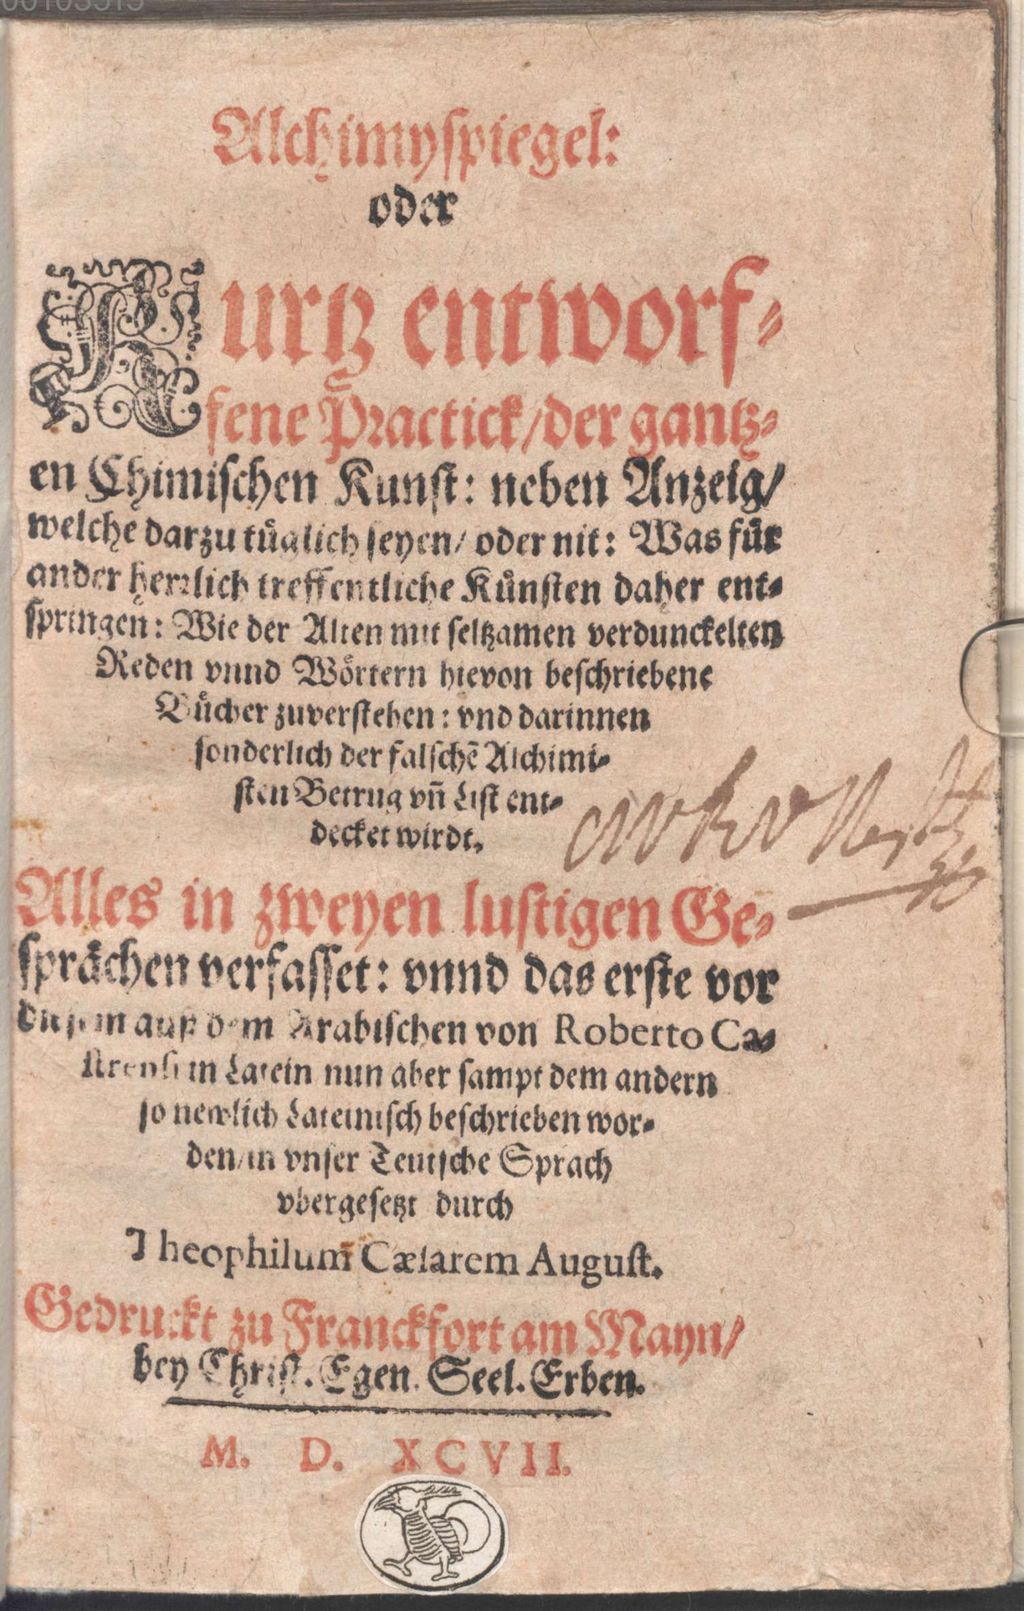 Alchimyspiegel:
oder
Kurtz entworf-
fene Practick/der gantz-
en Chimischen Kunst: neben Anzeig/
welche darzu tüglich seyen/ oder nit: Was für
ander herrlich treffentliche Künsten daher ent-
springen: Wie der Alten mit seltzamen verdunckelten
Reden vnnd Wörtern hievon beschriebene
Bücher zuverstehen: vnd darinnen
sonderlich der falschē Alchimi-
sten Betrug vn̄ List ent-
decket wirdt.
Alles in zweyen lustigen Ge-
sprächen verfasset: vnnd das erste vor
diesem auß dem Arabischen von Roberto Ca-
strensi in Latein nun aber sampt dem andern
so newlich Lateinisch beschrieben wor-
den/in vnser Teutsche Sprach
vbergesetzt durch
Theophilum Cæsarem August.
Gedruckt zu Franckfort am Mayn/
bey Christ. Egen. Seel. Erben.
M. D. XCVII.